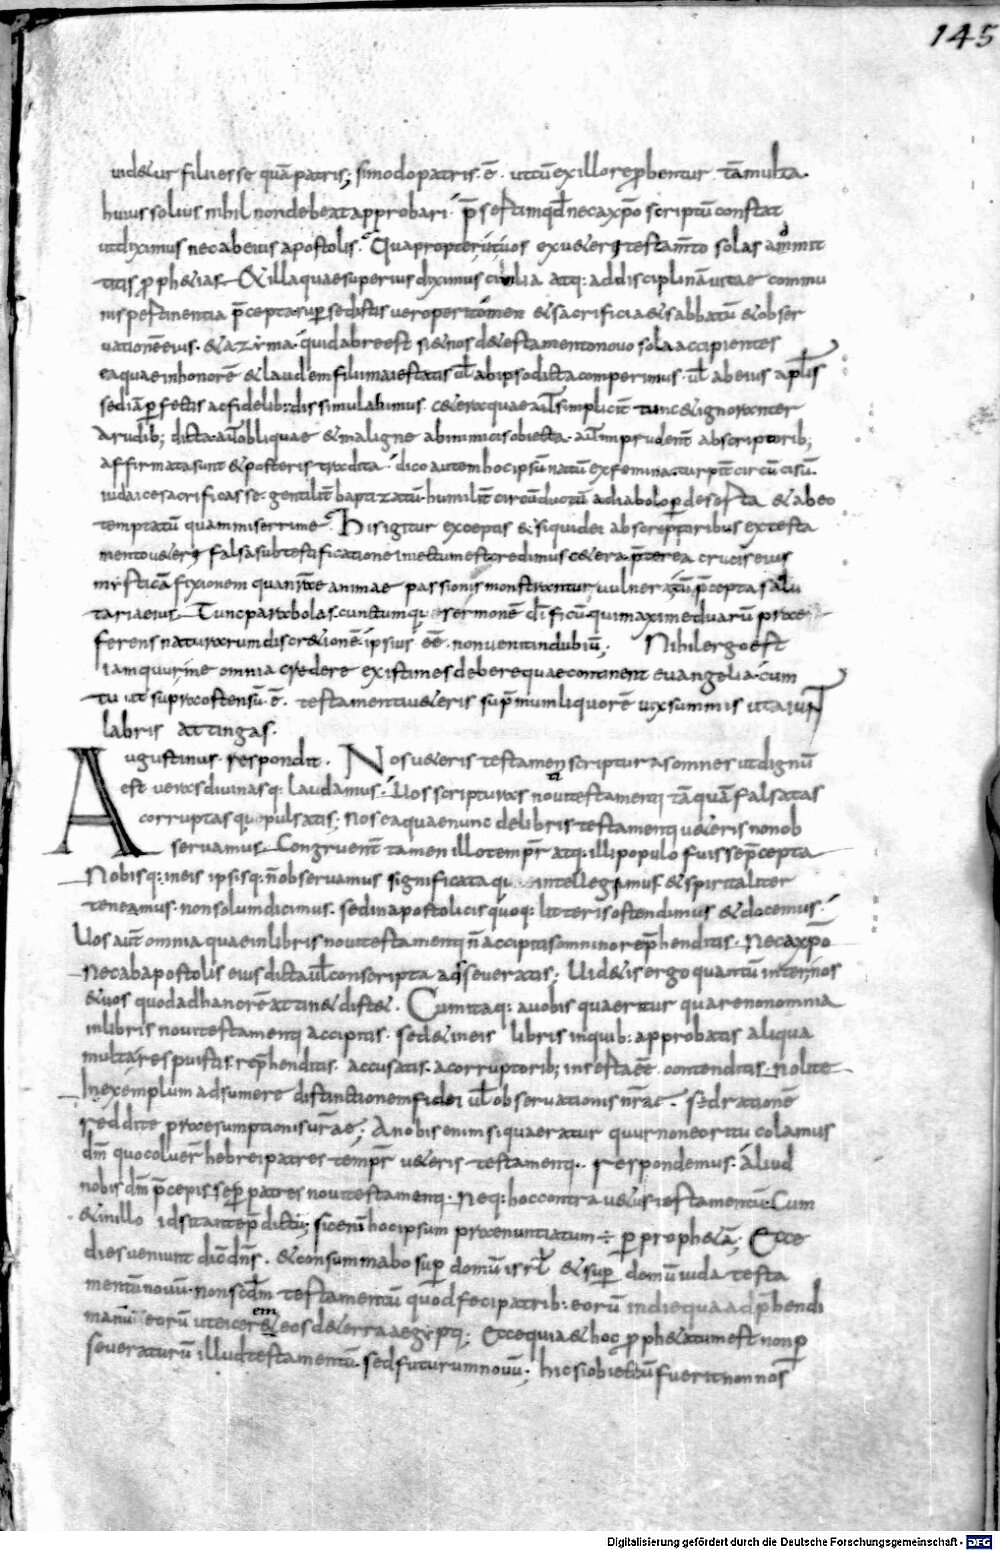 145
uidetur filii esse quā patris; si modo patris. ē. ut tū ex illo r͞phentur tā multa.
huius solius nihil non debeat approbari p̄sertim q͞d nec a xp̄o scriptū constat
ut diximus nec ab eius apostolis. Quapropter ut uos ex ueteri testam̄to solas ammit
titis prophetias. Et illa quae superius diximus ciuilia atq: ad disciplinā uitae commu
nis pertinentia p̄cepta. sup̄sedistis uero peritomen et sacrificia et sabbatū et obser
uationē eius. et azyma. quid ab re est si et nos de testamento nouo sola accipientes
ea quae in honorē et laudem filii maiestatis ul̄ ab ipso dicta comperimus. ul̄ ab eius ap̄lis
sed iā perfectis ac fidelib: dissimulabimus cetera quae aūt simplicit̄ tunc et ignoranter
a rudib; dicta. aūt oblique et maligne ab inimicis obiecta. aūt inprudent̄ ab scriptorib;
affirmata sunt et posteris tradita. dico autem hoc ipsū natū ex femina. turpit̄ circūcisū.
iudaice sacrificasse. gentilit̄ baptizatū. humilit̄ circūductū a diabolo per deserta et ab eo
temptatū quam miserrime. His igitur exceptis et siquid ei ab scriptoribus ex testa
mento ueteri falsa sub testificatione iniectum est credimus cetera p̄terea crucis eius
mysticā fixionem qua nr̄ae animae passionis monstrantur uulnera tū p̄cepta salu
taria eius. Tunc parabolas. cunctumq: sermonē dīficū qui maxime duarū prae
ferens naturarum discretionē ipsius eē. non uenit in dubiū; Nihil ergo est
iam quur me omnia credere existimes debere quae continent euangelia. cum
tu ut supra ostensū ē. testamenti ueteris sup̄mum liquorē uix summis ita iurr̄
labris attingas.
Augustinus respondit. Nos ueteris testamenti scripturas omnes ut dignū
est ueras diuinasq: laudamus. Uos scripturas noui testamenti tāquā falsatas
corruptasq: pulsatis; Nos ea quae nunc de libris testamenti ueteris non ob
seruamus. Congruent̄ tamen illo tempr̄ atq: illi populo fuisse p̄cepta
Nobisq: in eis ipsisq: n̄ obseruamus significata quae intellegamus et spiritaliter
teneamus. non solum dicimus. sed in apostolicis quoq: litteris ostendimus et docemus.
Uos aūt omnia quae in libris noui testamenti n̄ accipitis omnino rep̄henditis. Nec a xp̄o
nec ab apostolis eius dicta ul̄ conscripta adseueratis; Uidetis ergo quantū inter nos
et uos quod ad hanc rē attinet distet. Cum itaq: a uobis quaeritur quare non omnia
in libris noui testamenti accipitis. sed et in eis libris in quib: approbatis aliqua
multa respuitis. rep̄henditis. accusatis. a corruptorib; inserta eē contenditis. nolite
In exemplum adsumere distinctionem fidei ul̄ obseruationis nr̄ae. sed rationē
reddite praesumptionis ur̄ae; A nobis enim si quaeratur quur non eo ritu colamus
dm̄ quo coluer̄ hebrei patres tempr̄ ueteris testamenti.. respondemus. Aliud
nobis dm̄ p̄cepisse per patres noui testamenti. Neq: hoc contra uetus testamentū. Cum
et in illo id sit ante p̄dictū; sic enī hoc ipsum praenuntiatum ÷ per prophetā; Ecce
dies ueniunt dic̄ dn̄s. et consummabo sup̄ domū isrl̄ et sup̄ domū iuda testa
mentū nouū. non scd̄m testamentū quod feci patrib: eorū in die qua adp̄hendi
manū eorū ut eicerem eos de terra aegypti; Ecce quia et hoc prophetatum est non per
seueraturū illud testamentū. sed futurum nouū; hic si obiectū fuerit non nos
Digitalisierung gefördert durch die Deutsche Forschungsgemeinschaft - DFG